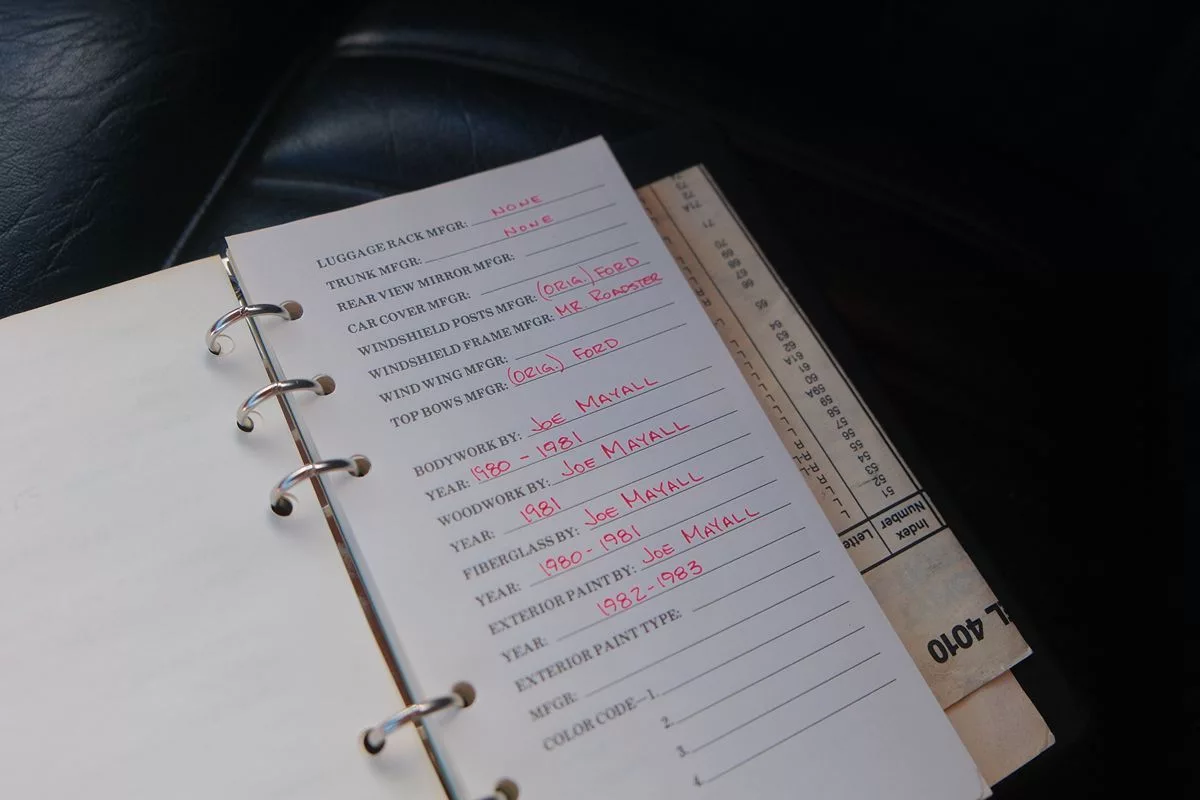 LUGGAGE RACK MFGR: NONE
TRUNK MFGR: NONE
REAR VIEW MIRROR MFGR:
CAR COVER MFGR:
WINDSHIELD POSTS MFGR: (ORIG.) FORD
WINDSHIELD FRAME MFGR: MR ROADSTER
WIND WING MFGR:
TOP BOWS MFGR: (ORIG.) FORD
BODYWORK BY: JOE MAYALL
YEAR: 1980 - 1981
WOODWORK BY: JOE MAYALL
YEAR: 1981
FIBERGLASS BY: JOE MAYALL
YEAR: 1980-1981
EXTERIOR PAINT BY: JOE MAYALL
YEAR: 1982-1983
EXTERIOR PAINT TYPE:
MFGR:
COLOR CODE—1.
2.
3.
4.
4010
Index
Number
51
52
53
54
55
56
57
58
59
59A
60
61
61A
62
63
64
65
66
67
68
69
70
71
71A
72
73